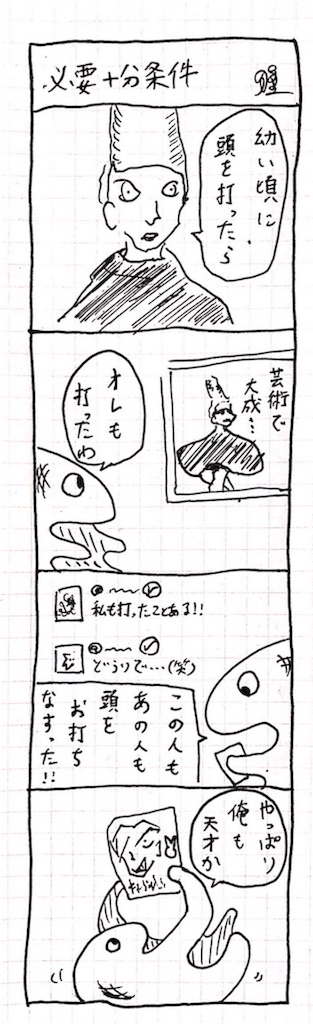 必要十分条件
瞳
幼い頃に
頭を打ったら
芸術で
大成…
オレも
打ったわ
私も打ったことある!!
どうりで…(笑)
この人も
あの人も
頭を
お打ち
なすった!!
やっぱり
俺も
天才か